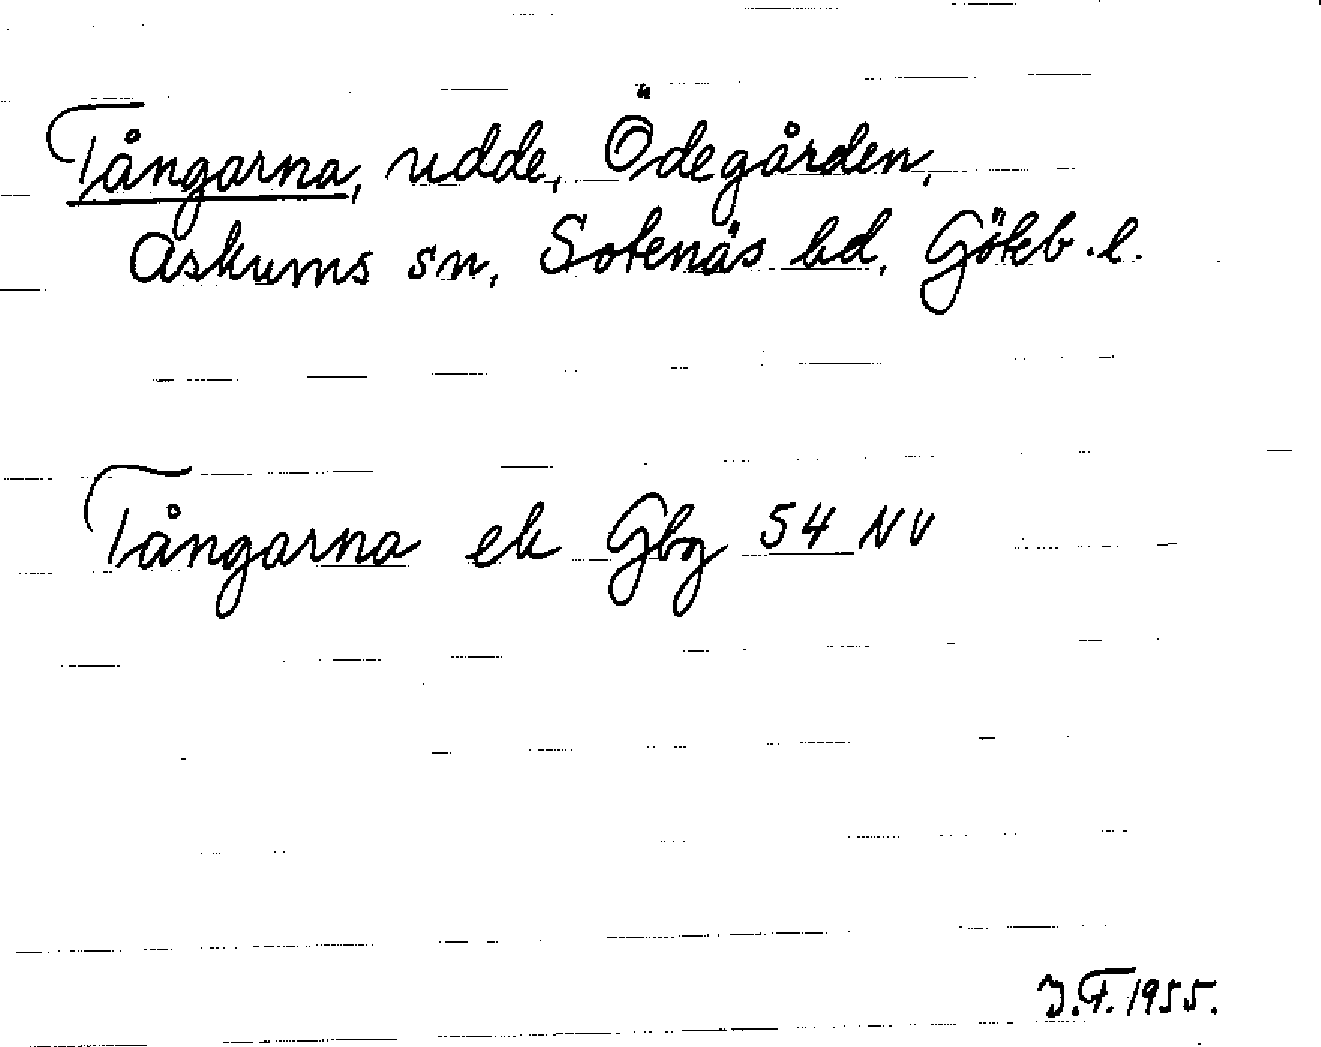 Tångarna, udde, Ödegården,
Askums sn, Sotenäs hd, Göteb. l.
Tångarna ek Gbg 54 NV
J.F. 1955.